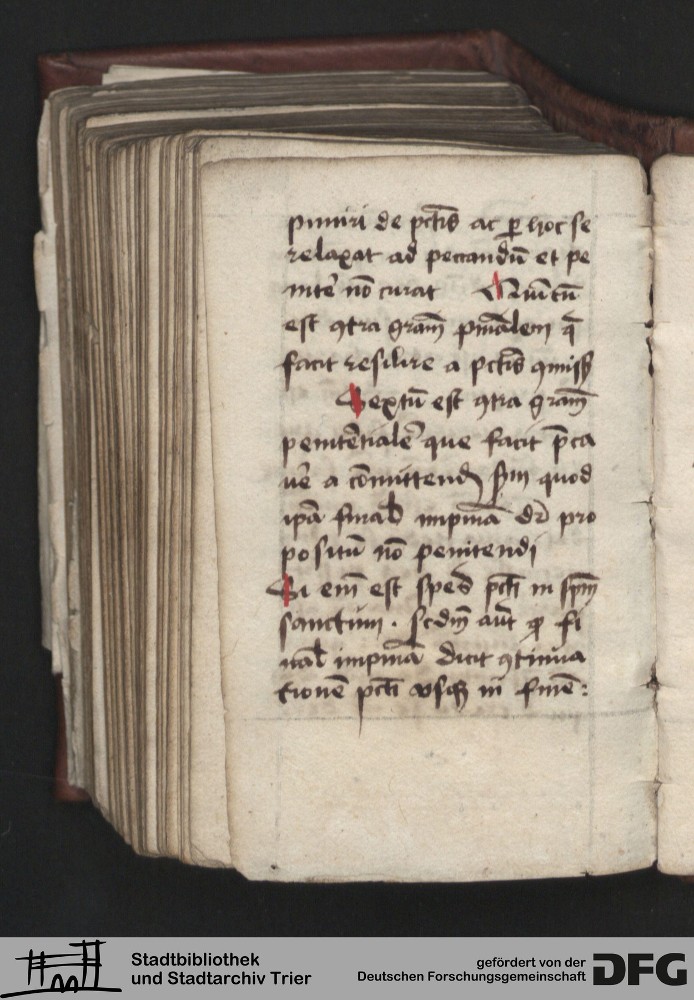 puniri de pctīs ac ꝑ hoc se
relaxat ad peccandū et pe
nite᷑ nō curat Quītū
est ꝯtra grām pniālem q̄
facit resilire a pctīs ꝯmiss
Sextū est ꝯtra grām
penitētialē que facit p̄ca
ue᷑ a cōmittendꝭ sm̄ quod
ipā final impniā dr̄ pro
positū nō penitendi
Si em̄ est spēs pcti in spm̄
sanctum . scdm̄ aūt ꝙ fi
nal impniā dicit ꝯtinua
tionē pcti vsqꝫ in finē :
Stadtbibliothek
und Stadtarchiv Trier
gefördert von der
Deutschen Forschungsgemeinschaft
DFG